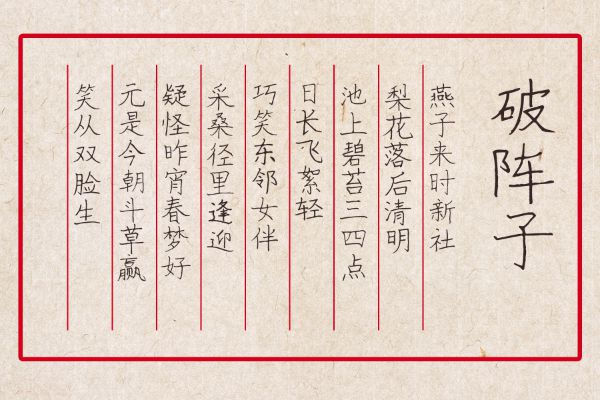 破阵子
燕子来时新社
梨花落后清明
池上碧苔三四点
日长飞絮轻
巧笑东邻女伴
采桑径里逢迎
疑怪昨宵春梦好
元是今朝斗草赢
笑从双脸生